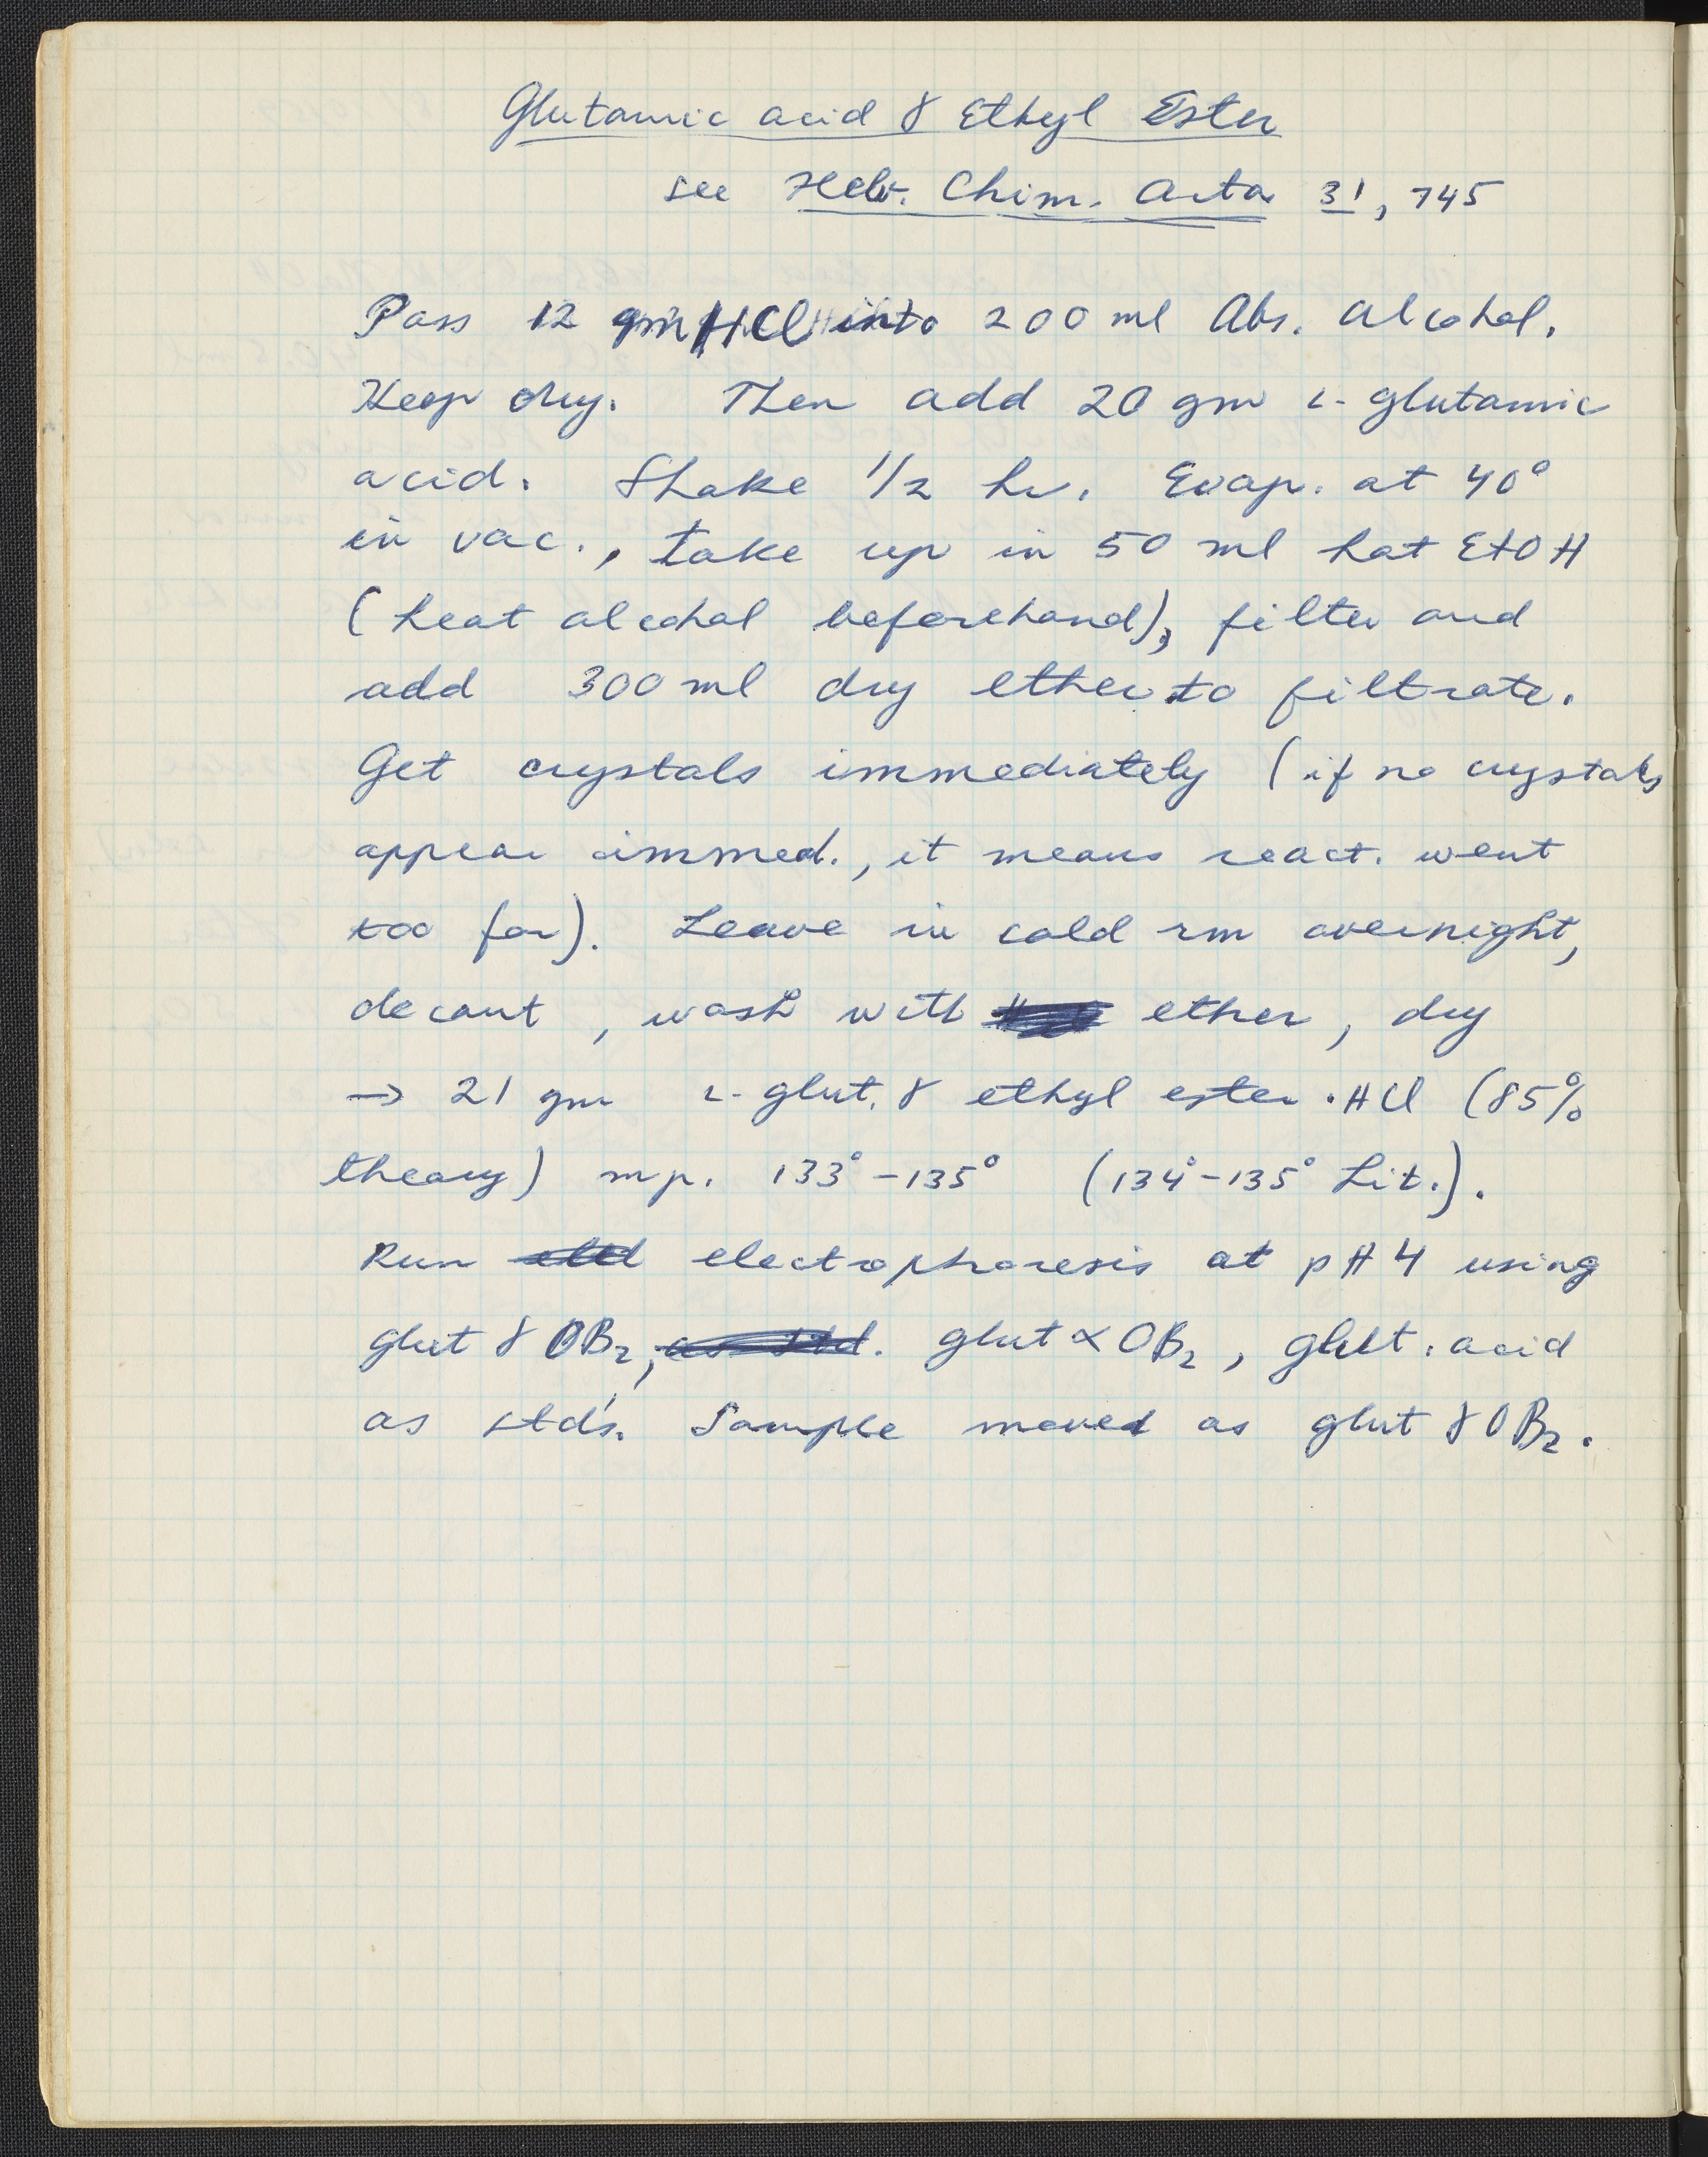 Glutamic acid γ Ethyl Ester
see Helv. Chim. Acta 31, 745
Pass 12 gm HCl into 200 ml Abs. Alcohol.
Keep dry. Then add 20 gm L-glutamic
acid. Shake 1/2 hr. Evap. at 40°
in vac., take up in 50 ml hot EtOH
(heat alcohol beforehand), filter and
add 300 ml dry ether to filtrate.
Get crystals immediately (if no crystals
appear immed., it means react. went
too far). Leave in cold rm overnight,
decant, wash with ether, dry
→ 21 gm L-glut. γ ethyl ester · HCl (85%
theory) mp. 133°-135° (134°-135° Lit.).
Run electrophoresis at pH 4 using
glut γ OBz, as std. glut α OBz, glut. acid
as std's. Sample moved as glut γ OBz.